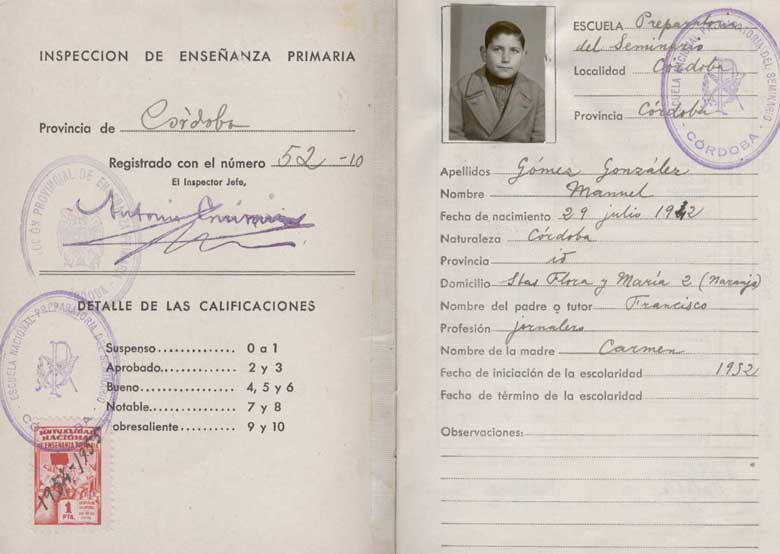 INSPECCION DE ENSEÑANZA PRIMARIA
Provincia de Córdoba
Registrado con el número 52-10
El Inspector Jefe,
Antonio
DETALLE DE LAS CALIFICACIONES
Suspenso............. 0 a 1
Aprobado............. 2 y 3
Bueno................ 4, 5 y 6
Notable.............. 7 y 8
obresaliente......... 9 y 10
ESCUELA NACIONAL PREPARATORIA DEL
CÓRDOBA
MUTUALIDAD
NACIONAL
DE ENSEÑANZA
1
PTA.
ESCUELA Preparatoria
del Seminario
Localidad Córdoba
Provincia Córdoba
ESCUELA NACIONAL PREPARATORIA DEL SEMINARIO
- CÓRDOBA -
Apellidos Gómez González
Nombre Manuel
Fecha de nacimiento 29 julio 1942
Naturaleza Córdoba
Provincia id
Domicilio Stas Flora y María 2 (Naranjo)
Nombre del padre o tutor Francisco
Profesión jornalero
Nombre de la madre Carmen
Fecha de iniciación de la escolaridad 1952
Fecha de término de la escolaridad
Observaciones: